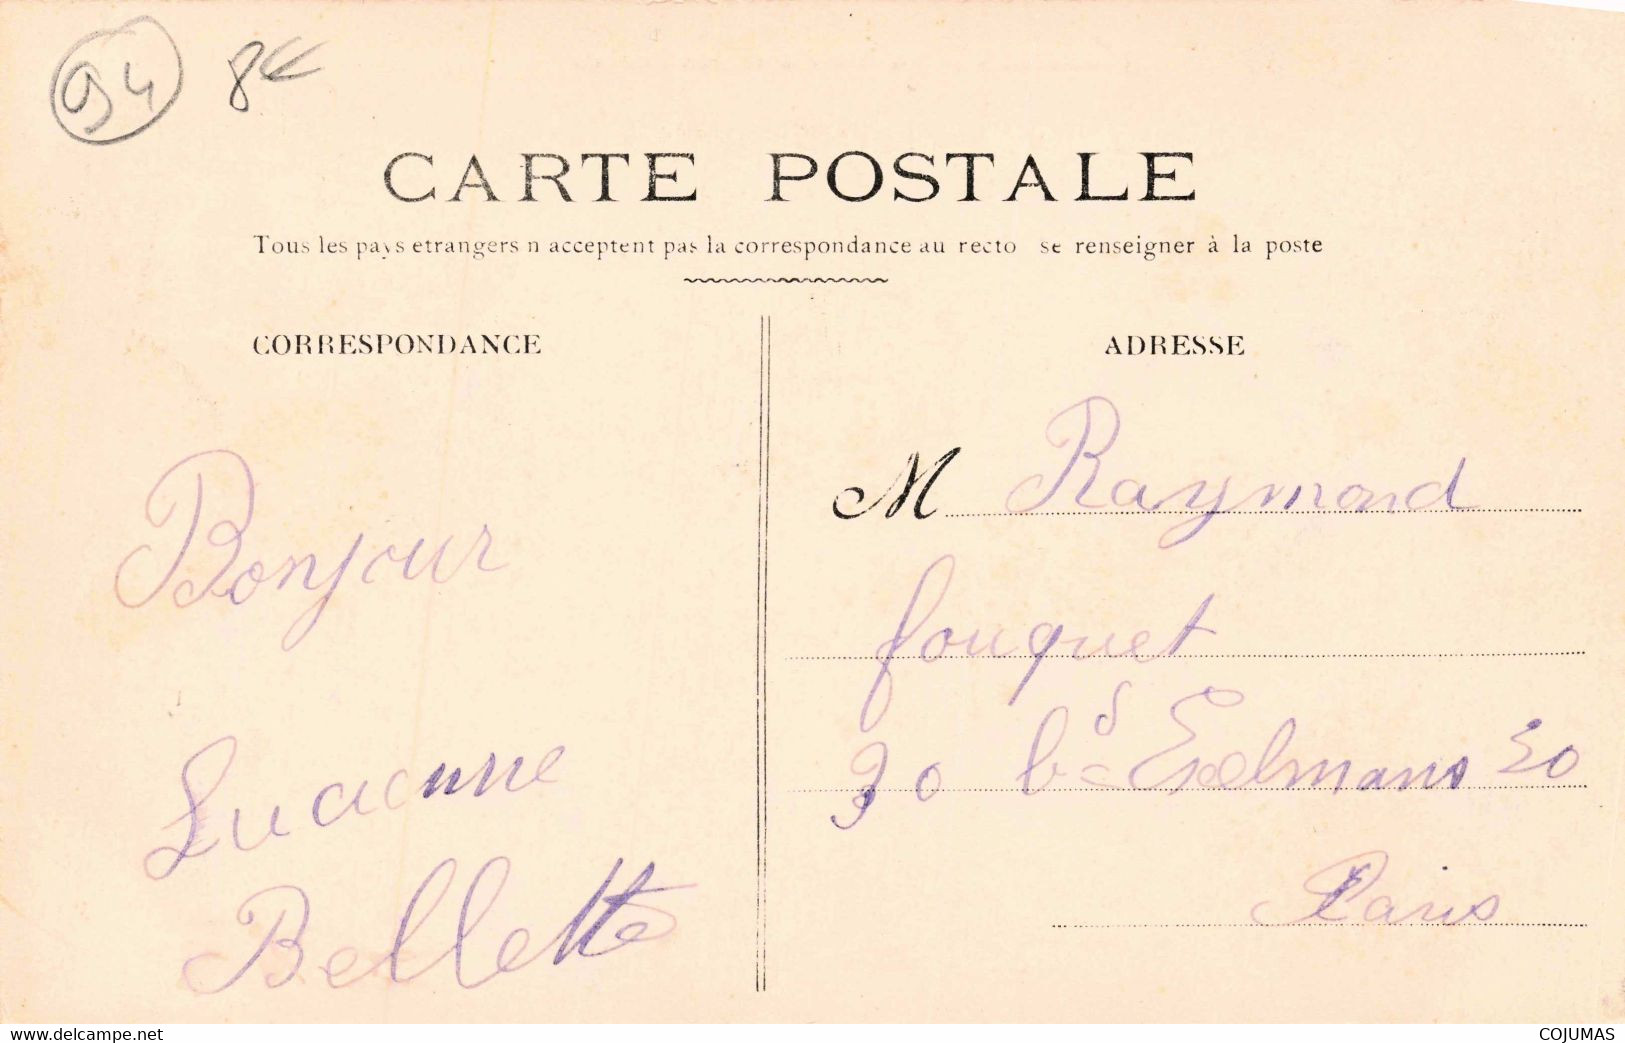 94 8€
CARTE POSTALE
Tous les pays etrangers n acceptent pas la correspondance au recto se renseigner à la poste
CORRESPONDANCE
ADRESSE
M Raymond
fouquet
30 bd Exelmans 30
Paris
Bonjour
Bellette
www.delcampe.net
COJUMAS